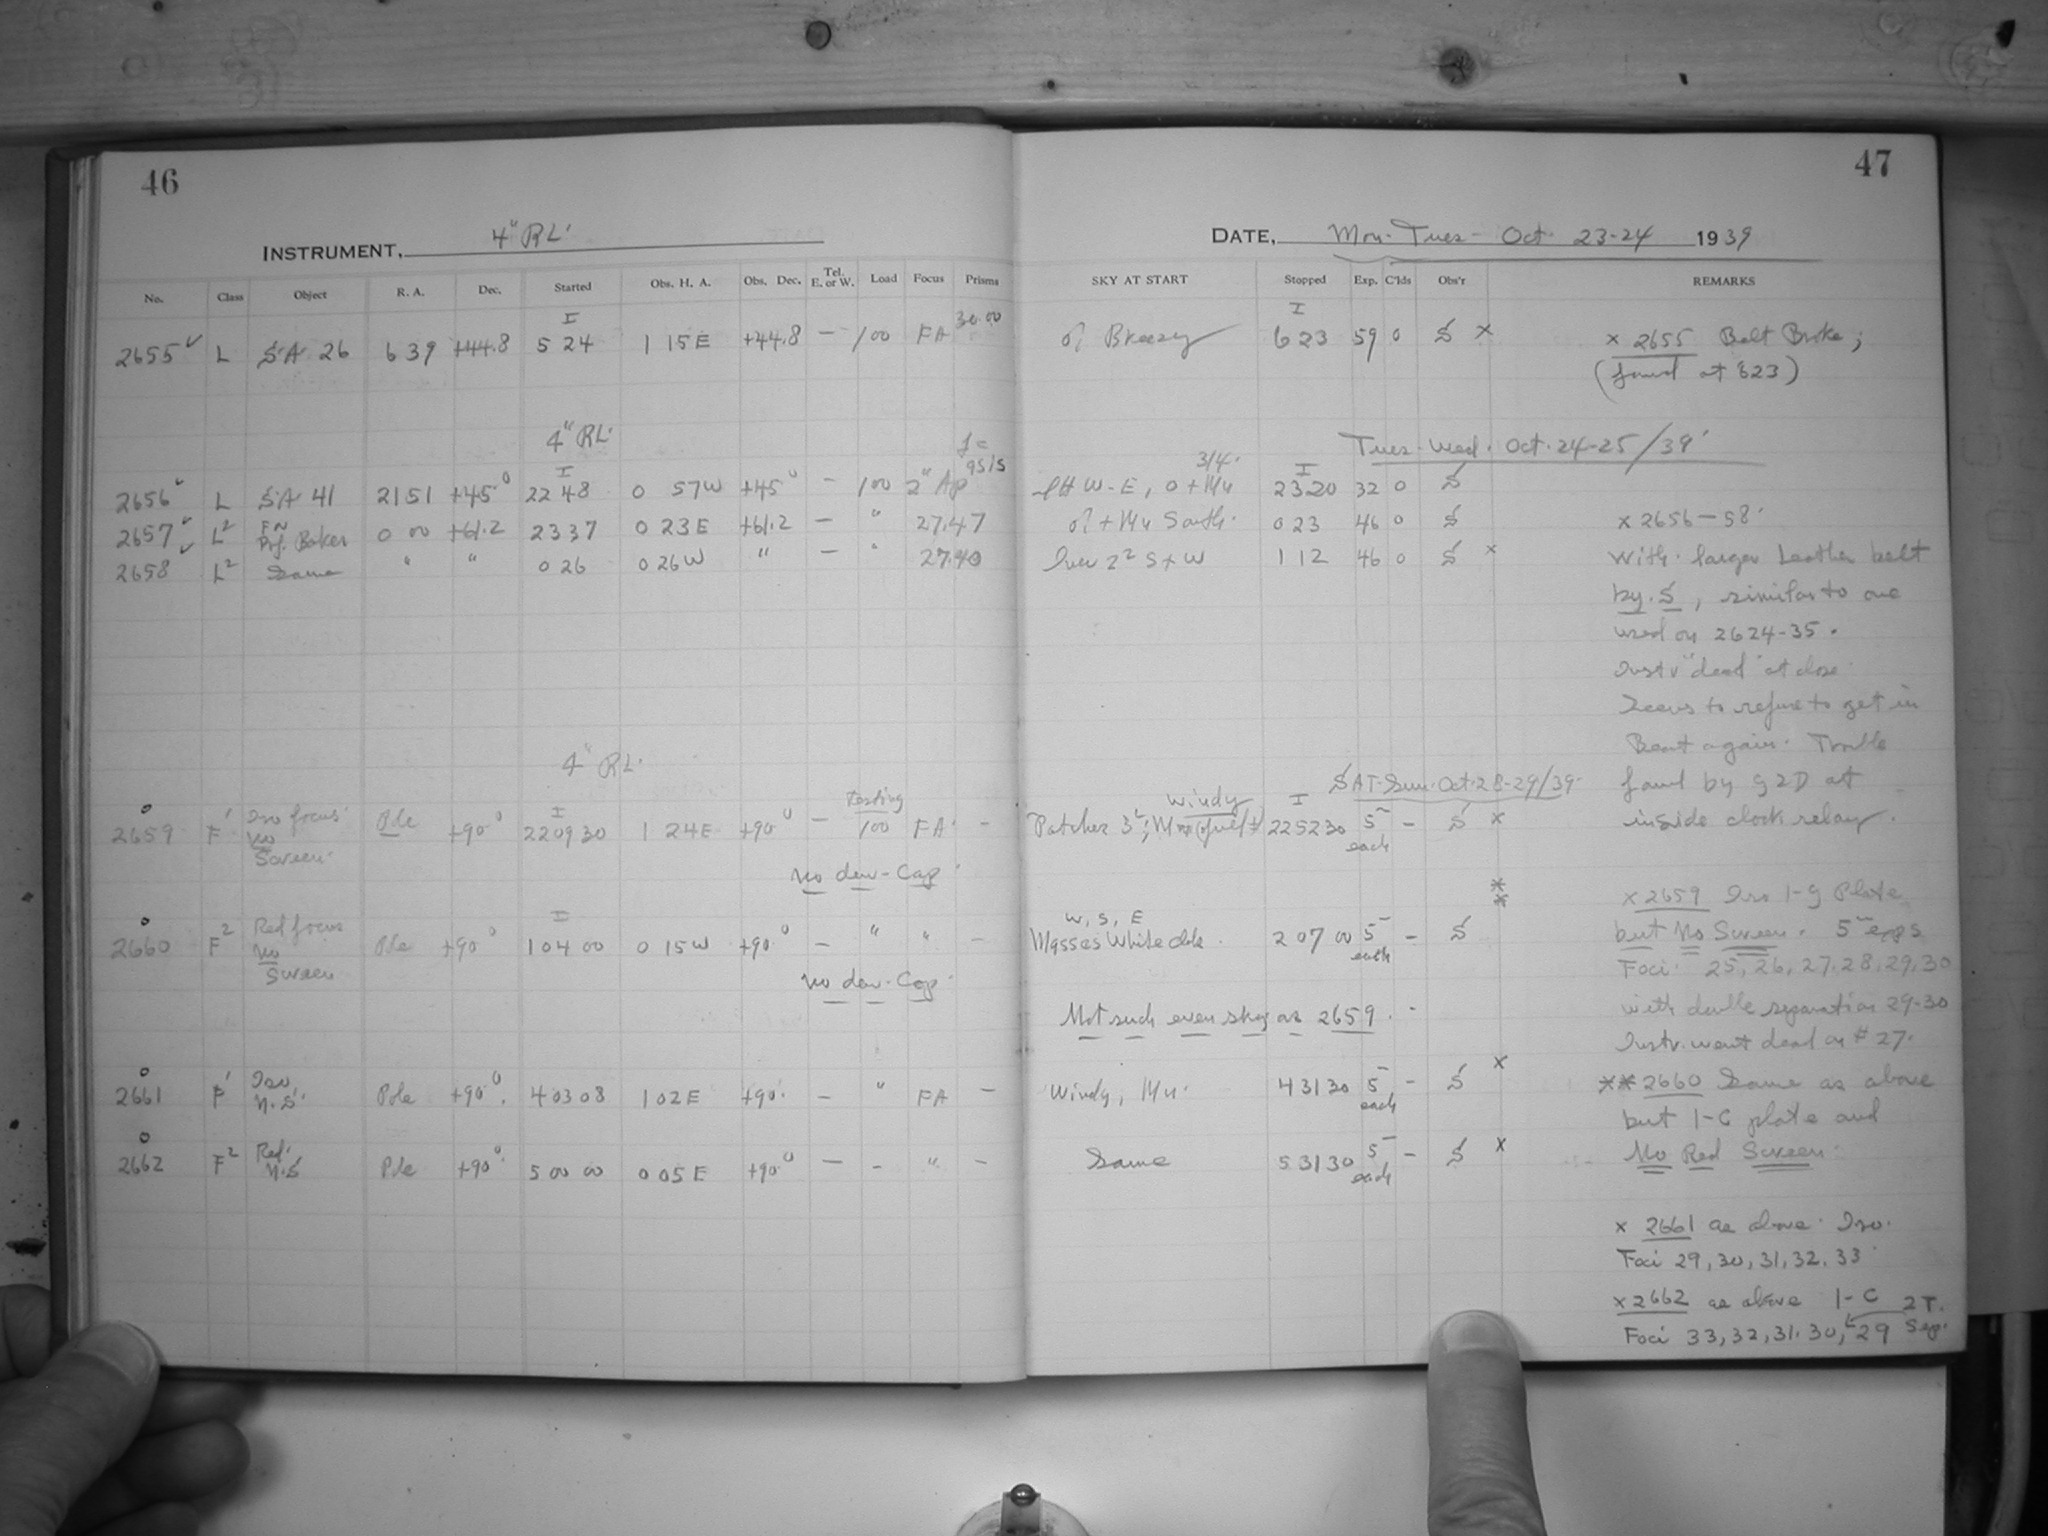 46
INSTRUMENT, 4" RL.
No. Class Object R. A. Dec. Started Obs. H. A. Obs. Dec. Tel. E. or W. Load Focus Prisms
I 30.00
2655 L SA 26 6 39 +44.8 5 24 1 15 E +44.8 — 100 FA
4" RL.
I f = 95/5
2656 L SA 41 21 51 +45° 22 48 0 57W +45° — 100 2" Ap
2657 L² Prf. Baker 0 00 +61.2 23 37 0 23 E +61.2 — " 27.47
2658 L² Same " " 0 26 0 26 W " — " 27.40
4" RL.
testing
2659 F' Iso focus No Screen Pole +90° I 22 09 30 1 24 E +90° — 100 FA —
No dew-Cap
2660 F² Red focus No Screen Pole +90° I 1 04 00 0 15 W +90° — " " —
No dew-Cap
2661 F' Iso N.S. Pole +90° 4 03 08 1 02 E +90° — " FA —
2662 F² Red. N.S Pole +90° 5 00 00 0 05 E +90° — - " —
47
DATE, Mon-Tues- Oct. 23-24 1939
SKY AT START Stopped Exp. C'lds Obs'r REMARKS
I
Breezy 6 23 59 0 S × × 2655 Belt Broke;
(found at 623)
Tues-Wed. Oct. 24-25/39
3/4. I
W-E, 0 + Mu 23 20 32 0 S
+ Mu South 0 23 46 0 S × 2656-58
2² S + W 1 12 46 0 S × With larger Leather belt
by S, similar to one
used on 2624-35.
Instr "dead" at close
Seems to refuse to get in
Beat again. Trouble
SAT-Sun. Oct. 28-29/39 found by g2D at
windy I
Patches 22 52 30 5 each — S × inside clock relay.
×× × 2659 Iso 1-g Plate
W, S, E
Masses White clds. 2 07 00 5 each — S but No Screen. 5 exps
Foci 25, 26, 27, 28, 29, 30
Not such even sky as 2659. with double separation 29-30
Instr. went dead on # 27.
Windy, Mu. 4 31 30 5 each — S × ×× 2660 Same as above
but 1-C plate and
Same 5 31 30 5 each — S × No Red Screen
× 2661 as above Iso.
Foci 29, 30, 31, 32, 33
× 2662 as above 1-C 2 T. Sep.
Foci 33, 32, 31, 30, 29